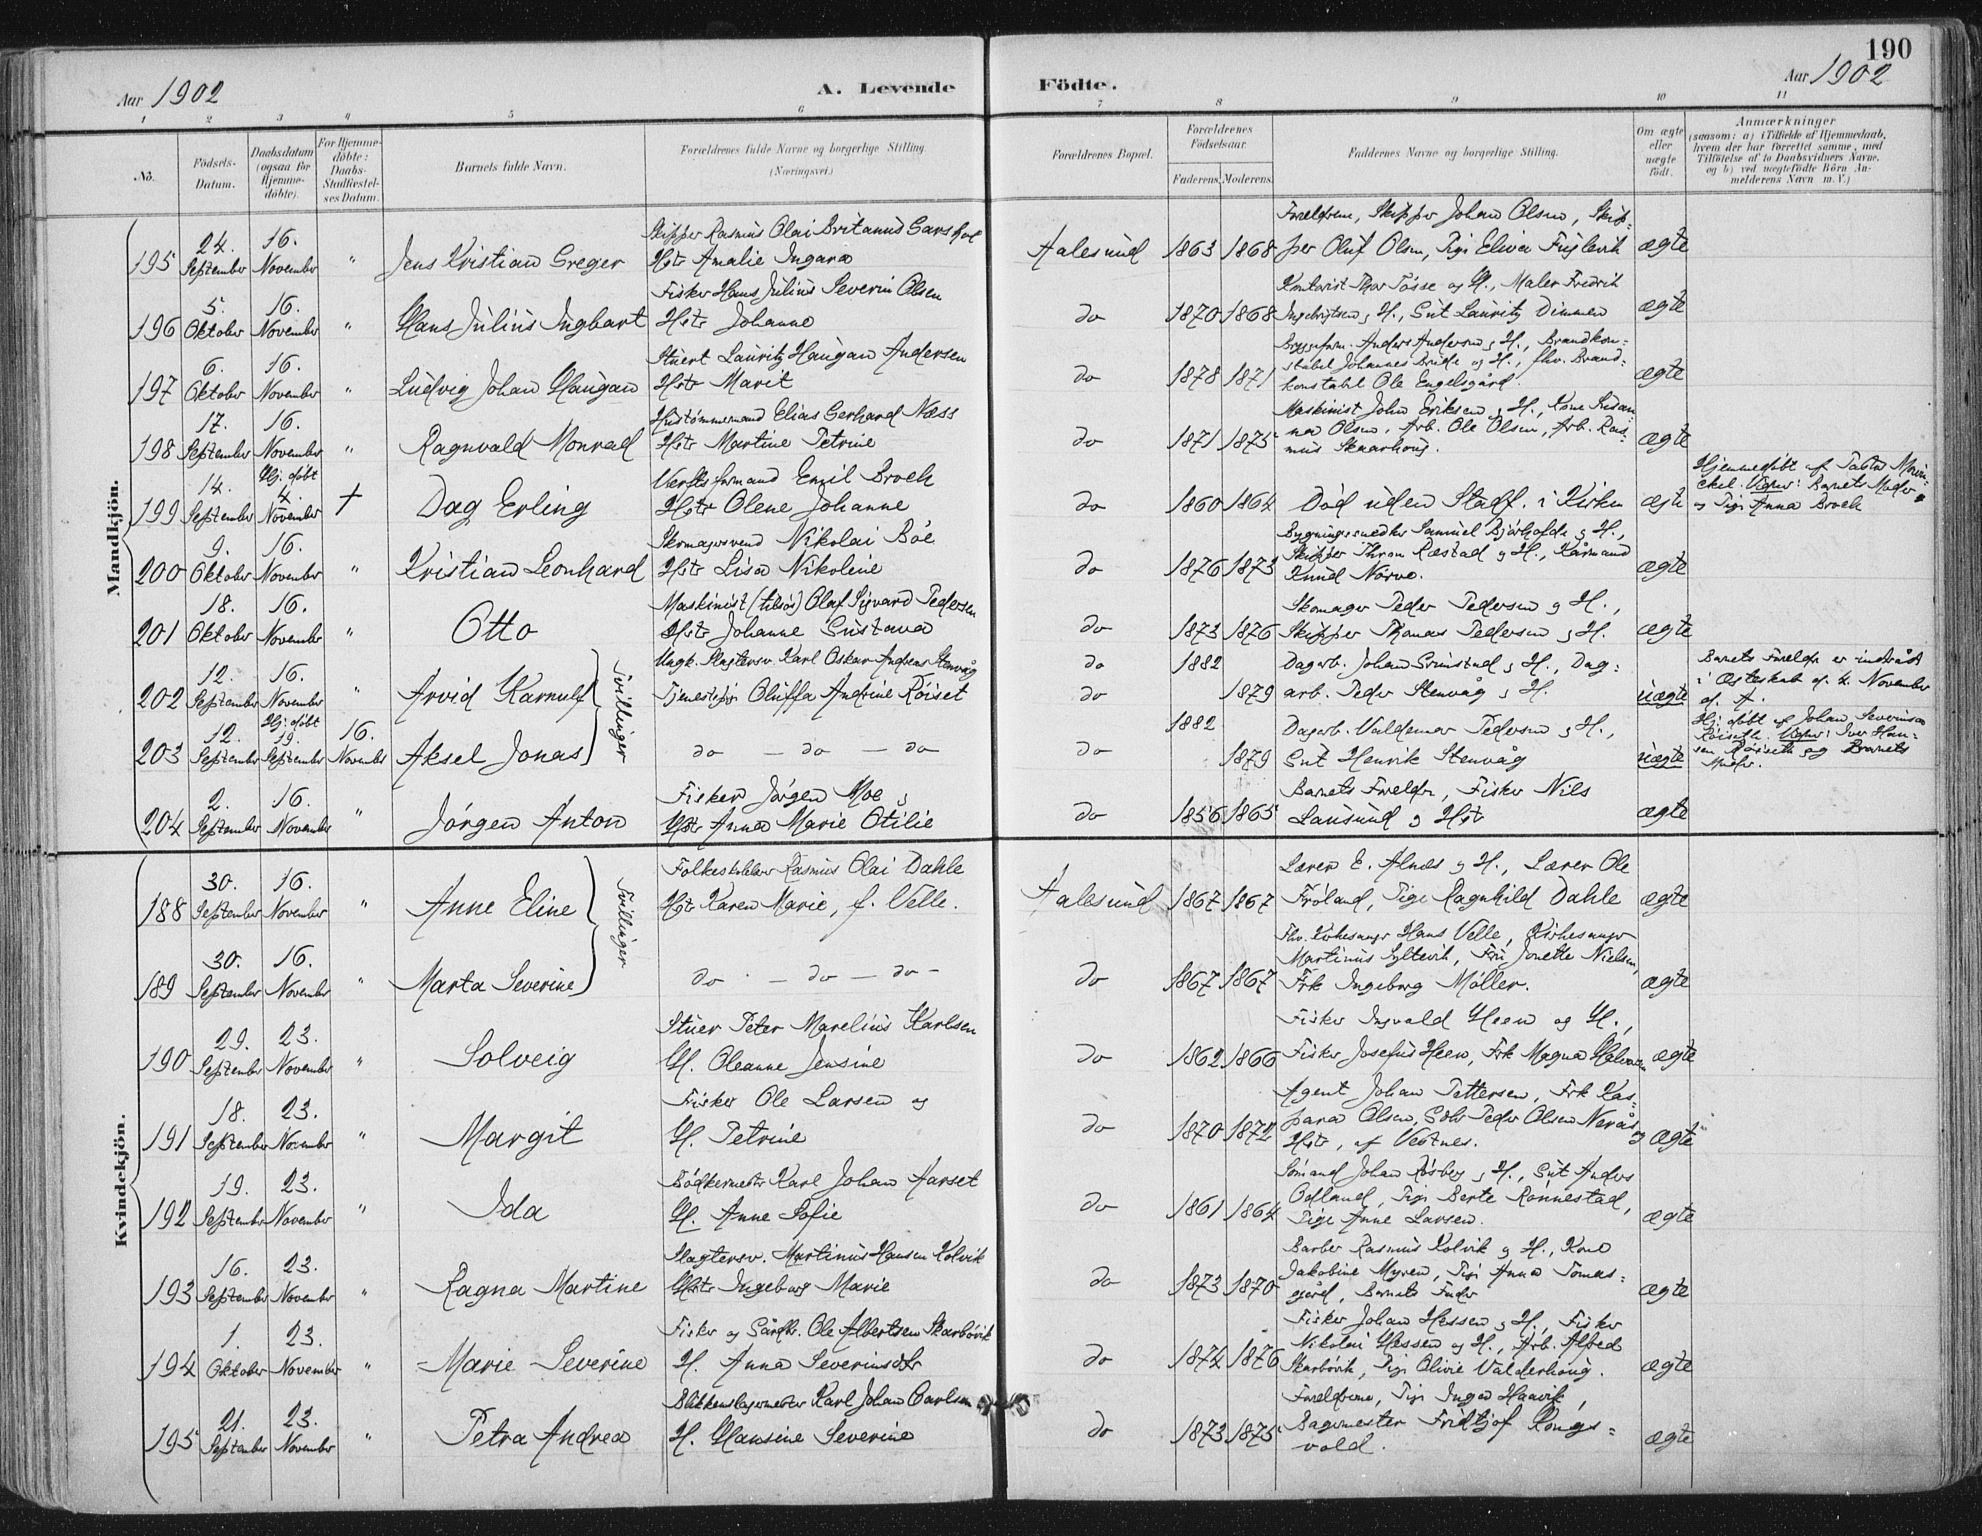 190
Aar 1902
A. Levende
Födte.
Aar 1902
1 2 3 4 5 6 7 8 9 10 11
No.
Födsels-
Datum.
Daabsdatum
(ogsaa for
Hjemme-
döbte).
For Hjemme-
döbte:
Daabs-
Stadfæstel-
ses Datum.
Barnets fulde Navn.
Forældrenes fulde Navne og borgerlige Stilling.
(Næringsvei.)
Forældrenes Bopæl.
Forældrenes
Födselsaar.
Faderens. Moderens.
Faddernes Navne og borgerlige Stilling.
Om ægte
eller
uægte
födt.
Anmærkninger
(saasom: a) i Tilfælde af Hjemmedaab,
hvem der har forrettet samme, med
Tilföielse af to Daabsvidners Navne,
og b) ved uægtefödte Börn An-
melderens Navn m. V.)
Mandkjön.
195 24. September 16. November " Jens Kristian Greger
Skipper Rasmus Olai Britanus Garshol
Hstr Amalie Ingara
Aalesund 1863 1868
Forældrene, Skipper Johan Olsen, Skip-
per Oluf Olsen, Pige Elina Fuglevik
ægte
196 5. Oktober 16. November " Hans Julius Ingbart
Fisker Hans Julius Severin Olsen
Hstr Johanne
do 1870 1868
Kontorist Thor Tösse og H., Maler Fredrik
Ingebrigtsen, H., Gut Lauritz Dimmen
ægte
197 6. Oktober 16. November " Ludvig Johan Haugan
Stuert Lauritz Haugan Andersen
Hstr Marit
do 1878 1871
Byggeform. Anders Andersen, H., Brandkon-
stabel Johannes Brude og H., fhv. Brand-
konstabel Ole Engelsgård.
ægte
198 17. September 16. November " Ragnvald Monrad
Hustömmermand Elias Gerhard Næss
Hstr Martine Petrine
do 1871 1875
Maskinist John Eriksen, H., Kone Susan-
na Olsen, Arb. Ole Olsen, Arb. Ras-
mus Skaarhoug.
ægte
199 14. September Hj. döbt 4. November † Dag Erling
Verftsformand Emil Broch
Hstr Olene Johanne
do 1860 1864
Död uden Stadf. i Kirken
ægte
Hjemmedöbt af Pastor
Vidner: Barnets Moder
og Pige Anna Broch
200 9. Oktober 16. November " Kristian Leonhard
Skomagersvend Nikolai Böe
Hstr Lisa Nikoline
do 1876 1873
Bygningssnedker Samuel Bjärhofde og H.,
Skipper Thron Ræstad og H., Kårmand
Knud Nörve.
ægte
201 18. Oktober 16. November " Otto
Maskinist (tilsös) Olaf Sigvard Pedersen
Hstr Johanne Gustava
do 1873 1876
Skomager Peder Pedersen og H.,
Skipper Thomas Pedersen og H.
ægte
202 12. September 16. November " Arvid Karnulf
Tvillinger
Ungk. Slagtersv. Karl Oskar Andreas Stenvåg
Tjenestepige Oluffa Andrine Röiset
do 1882
do 1879
Dagarb. Johan Grimstad og H., Dag-
arb. Peder Stenvåg og H.
uægte
Barnets Forældre er indtrådt
i Ægteskab d. 4. November
d. A.
203 12. September Hj. döbt 19. September 16. November Aksel Jonas
do – do – do
1882
do 1879
Dagarb. Valdemar Pedersen og H.,
Gut Henrik Stenvåg
uægte
Hj. döbt af Johan Severinsen
Röiseth. Vidner: Iver Han-
sen Röiseth og Barnets
Moder.
204 2. September 16. November " Jörgen Anton
Fisker Jörgen Moe og
Hstr Anna Marie Otilie
do 1856 1865
Barnets Forældre, Fisker Nils
Lausund og Hstr
ægte
Kvindekjön.
188 30. September 16. November " Anne Eline
Tvillinger
Folkeskolelærer Rasmus Olai Dahle
Hstr Karen Marie, f. Velle.
Aalesund 1867 1867
Lærer E. Alnæs og H., Lærer Ole
Fröland, Pige Ragnhild Dahle
ægte
189 30. September 16. November " Marta Severine
do – do – do –
do 1867 1867
Fhv. Kirkesanger Hans Velle, Kirkesanger
Martinus Syltevik, Fru Jonette Nielsen,
Frk Ingeborg Möller.
ægte
190 29. September 23. November " Solveig
Stuer Peter Marelius Karlsen
H. Oleanne Jensine
do 1862 1866
Fisker Ingvald Heen og H.,
Fisker Josefus Heen, Frk Magna
ægte
191 18. September 23. November " Margit
Fisker Ole Larsen og
H. Petrine
do 1870 1872
Agent Johan Pettersen, Frk Kas-
para Olsen, Gbr Peder Olsen Nerås og
Hstr, af Vestnes.
ægte
192 19. September 23. November " Ida
Bödkermester Karl Johan Aarset
H. Anne Sofie
do 1861 1864
Sömand Johan Rösberg og H., Gut Anders
Ödland, Pige Berte Rønnestad,
Pige Anne Larsen.
ægte
193 16. September 23. November " Ragna Martine
Slagtersv. Martinus Hansen Kolvik
Hstr Ingeborg Marie
do 1873 1870
Barber Rasmus Kolvik og H., Kone
Jakobine Myren, Pige Anna Tomas-
gård, Barnets Fader
ægte
194 1. Oktober 23. November " Marie Severine
Fisker og Gårdbr. Ole Albertsen Skarbövik
H. Anna Severinsdtr
do 1874 1876
Fisker Johan Hessen og H., Fisker
Nikolai Hessen og H., Arb. Alfred
Skarbövik, Pige Olivie Valderhoug.
ægte
195 21. September 23. November " Petra Andrea
Blikkenslagermester Karl Johan Carlsen
H. Hansine Severine
do 1873 1875
Forældrene, Pige Inga Haavik,
Bagermester Fridtjof Kongs-
vold.
ægte